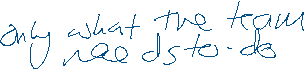 only what the team
needs to-do